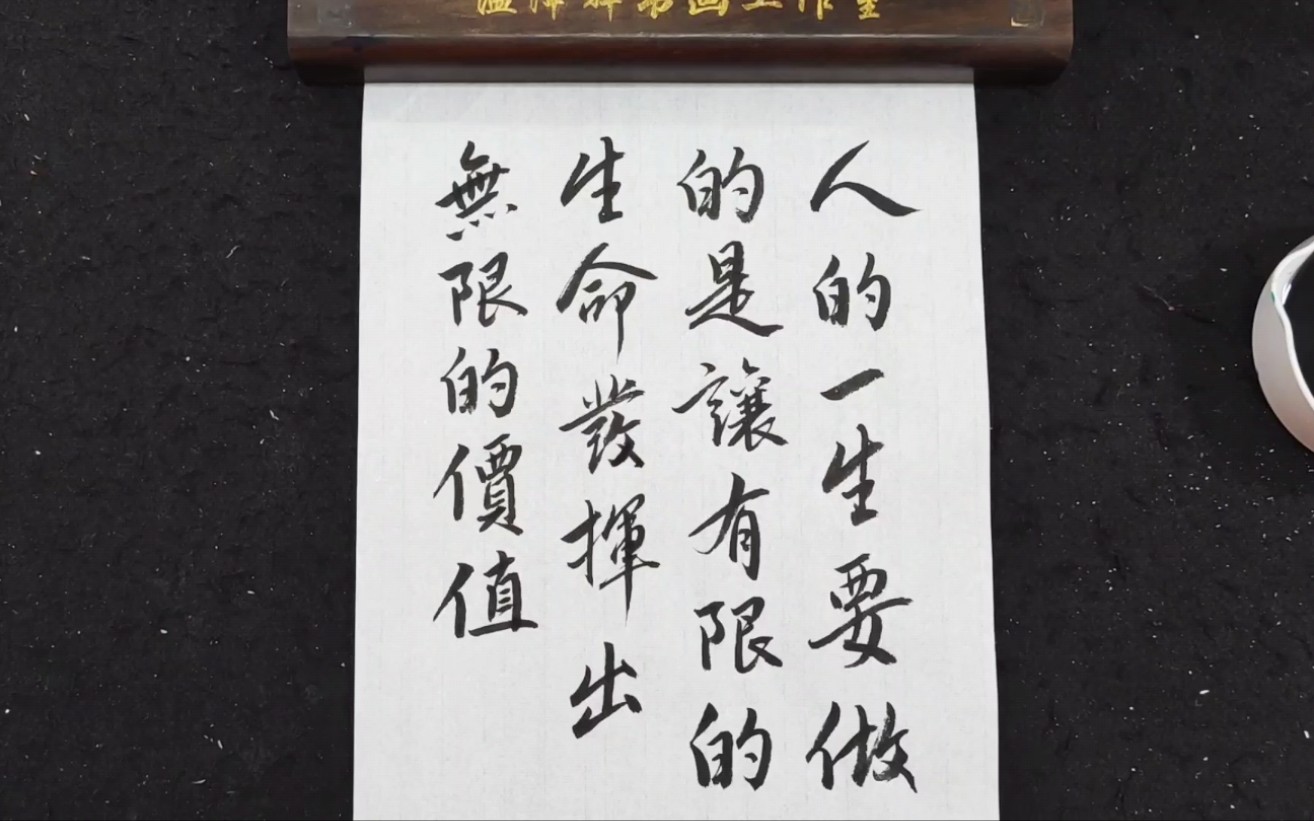 人的一生要做
的是讓有限的
生命發揮出
無限的價值